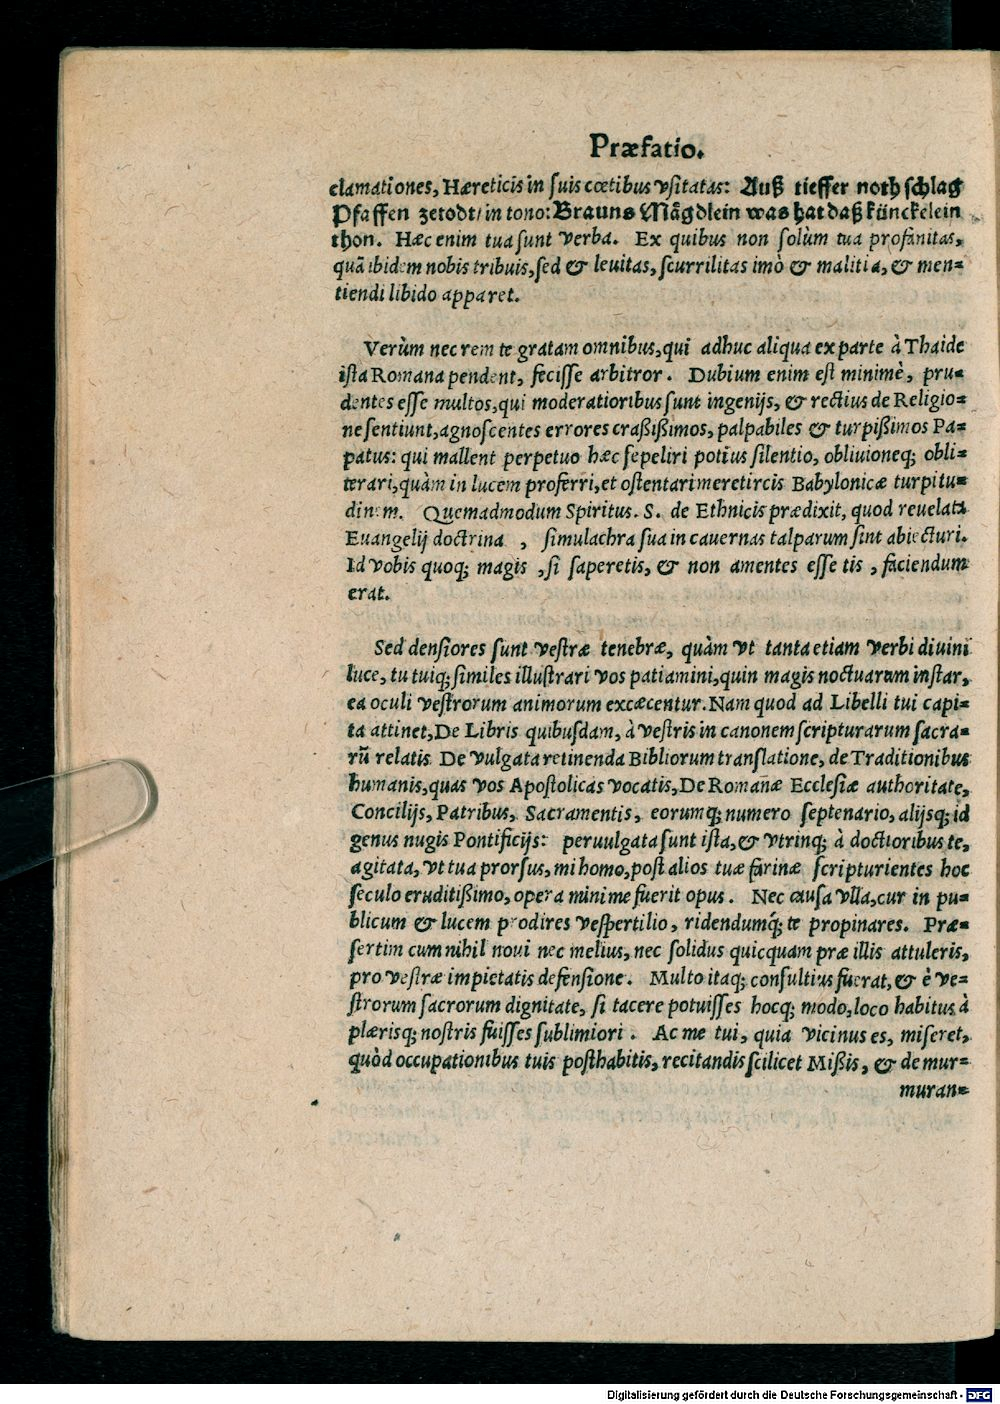 Præfatio.
clamationes, Hæreticis in suis cœtibus vsitatas: Auß tieffer noth schlag
Pfaffen zetodt/ in tono: Brauns Mågdlein was hat daß künckelein
thon. Hæc enim tua sunt verba. Ex quibus non solùm tua profanitas,
quã ibidem nobis tribuis, sed & leuitas, scurrilitas imò & malitia, & men=
tiendi libido apparet.
Verùm nec rem te gratam omnibus, qui adhuc aliqua ex parte à Thaide
ista Romana pendent, fecisse arbitror. Dubium enim est minimè, pru=
dentes esse multos, qui moderatioribus sunt ingenijs, & rectius de Religio=
ne sentiunt, agnoscentes errores craßißimos, palpabiles & turpißimos Pa=
patus: qui mallent perpetuo hæc sepeliri potius silentio, obliuioneq; obli=
terari, quàm in lucem proferri, et ostentari meretircis Babylonicæ turpitu=
dinem. Quemadmodum Spiritus. S. de Ethnicis prædixit, quod reuelata
Euangelij doctrina , simulachra sua in cauernas talparum sint abiecturi.
Id vobis quoq; magis , si saperetis, & non amentes esse tis , faciendum
erat.
Sed densiores sunt vestræ tenebræ, quàm vt tanta etiam verbi diuini
luce, tu tuiq; similes illustrari vos patiamini, quin magis noctuarum instar,
ea oculi vestrorum animorum excæcentur. Nam quod ad Libelli tui capi=
ta attinet, De Libris quibusdam, à vestris in canonem scripturarum sacra=
rũ relatis De vulgata retinenda Bibliorum translatione, de Traditionibus
humanis, quas vos Apostolicas vocatis, De Romanæ Ecclesiæ authoritate,
Concilijs, Patribus, Sacramentis, eorumq; numero septenario, alijsq; id
genus nugis Pontificijs: peruulgata sunt ista, & vtrinq; à doctioribus te,
agitata, vt tua prorsus, mi homo, post alios tuæ farinæ scripturientes hoc
seculo eruditißimo, opera minime fuerit opus. Nec causa vlla, cur in pu=
blicum & lucem prodires vespertilio, ridendumq́; te propinares. Præ=
sertim cum nihil noui nec melius, nec solidus quicquam præ illis attuleris,
pro vestræ impietatis defensione. Multo itaq; consultius fuerat, & è ve=
strorum sacrorum dignitate, si tacere potuisses hocq; modo, loco habitus à
plærisq; nostris fuisses sublimiori. Ac me tui, quia vicinus es, miseret,
quòd occupationibus tuis posthabitis, recitandis scilicet Mißis, & de mur=
muran=
Digitalisierung gefördert durch die Deutsche Forschungsgemeinschaft - DFG